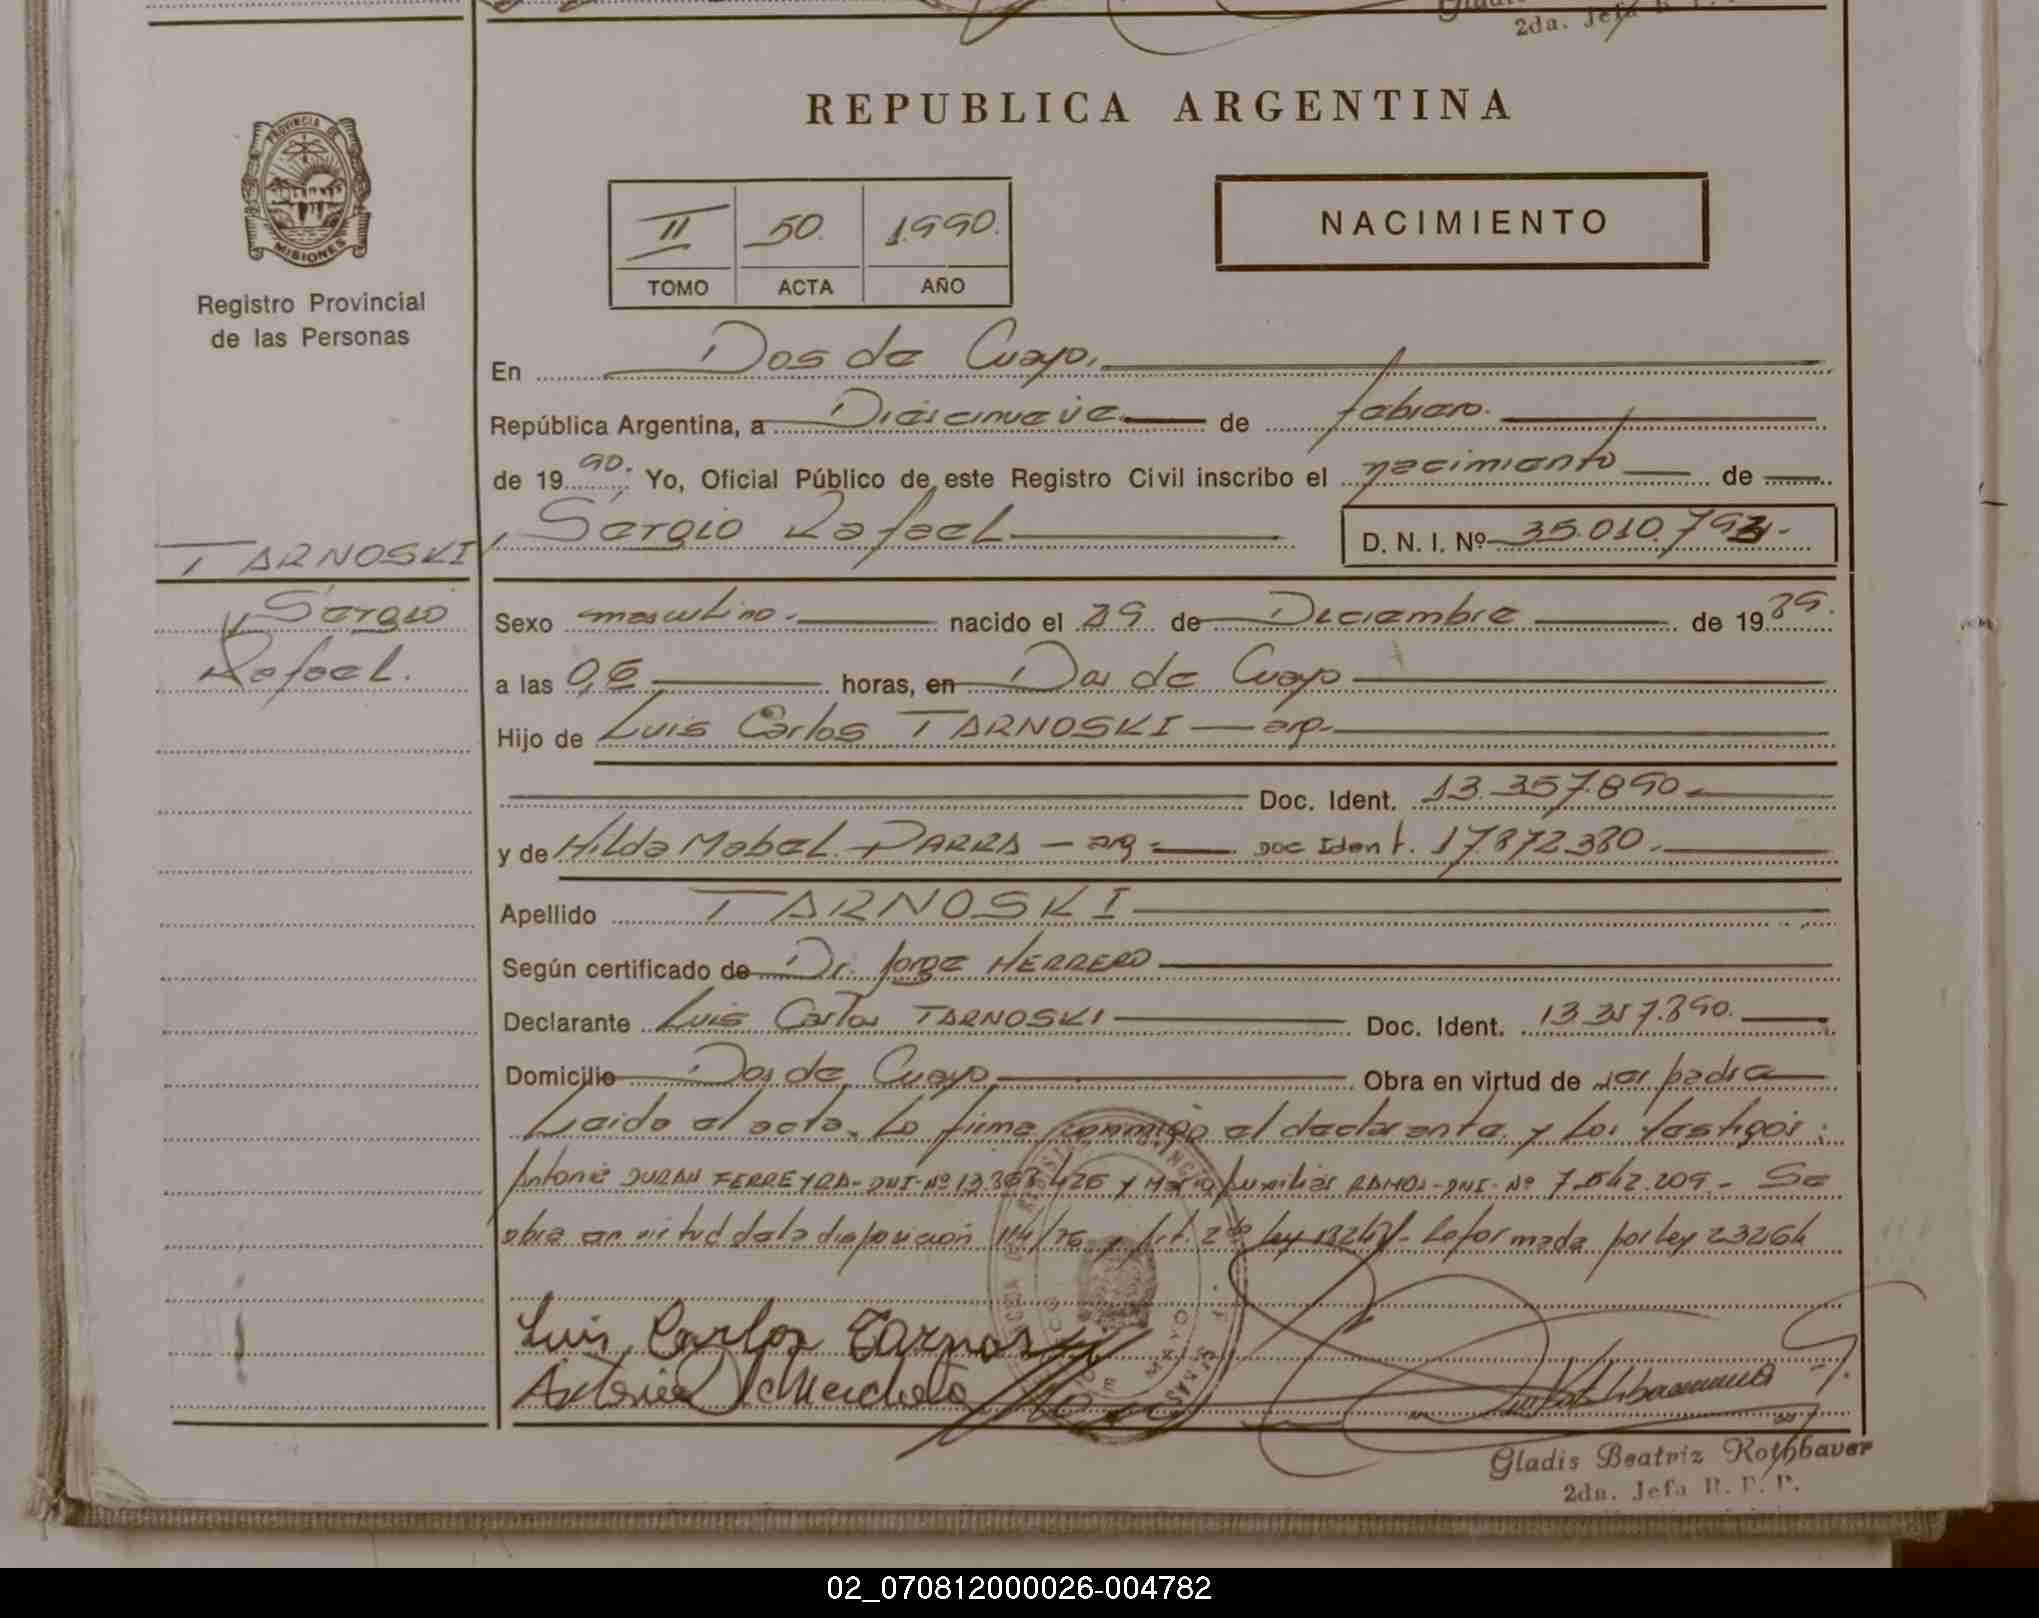 2da. Jefa R. P.
REPUBLICA ARGENTINA
PROVINCIA DE
MISIONES
Registro Provincial
de las Personas
II 50. 1990.
TOMO ACTA AÑO
NACIMIENTO
En Dos de Mayo.
República Argentina, a Diecinueve de febrero.
de 1990. Yo, Oficial Público de este Registro Civil inscribo el nacimiento de
Sergio Rafael D. N. I. Nº 35.010.793
TARNOSKI,
Sergio
Rafael.
Sexo masculino. nacido el 29 de Deciembre de 1989.
a las 06 horas, en Dos de Mayo
Hijo de Luis Carlos TARNOSKI — arg.
Doc. Ident. 13.357.890.
y de Hilda Mabel PARRA — arg. — Doc Ident. 17.872.380.
Apellido TARNOSKI
Según certificado de Dr. Jorge HERRERO
Declarante Luis Carlos TARNOSKI Doc. Ident. 13.357.890.
Domicilio Dos de Mayo Obra en virtud de ser padre
Leido el acta. Lo firma conmigo el declarante y los testigos:
Antonio DURAN FERREYRA-DNI-Nº y RAMOS-DNI-Nº 7.542.209.- Se
obra en virtud de la disposición 114/76 y Art. 2do ley Reformada por ley 23264
Luis Carlos Tarnoski
Gladis Beatriz Rothbaver
2da. Jefa R. P. P.
02_070812000026-004782